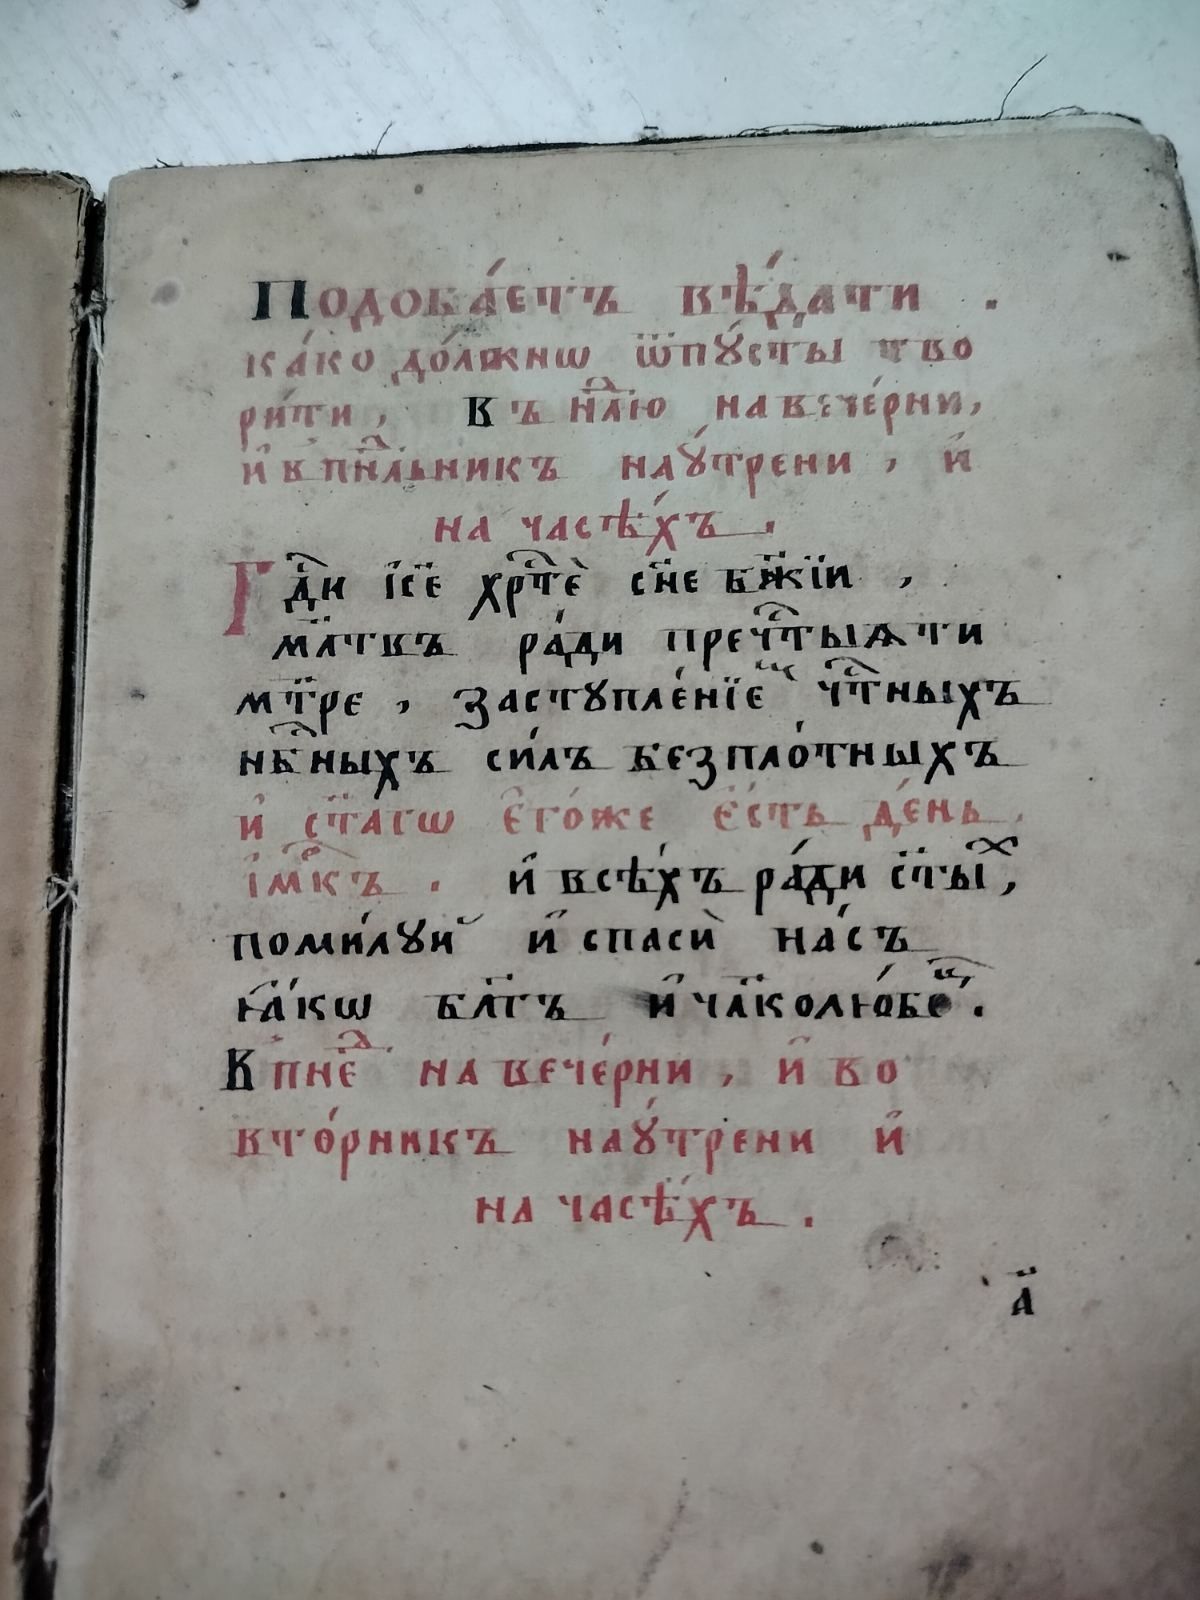 Подоба́етъ вѣ́дати .
ка́ко до́лжнѡ ѿпꙋ́сты тво
ри́ти , Въ нⷣ҇лю на вече́рни,
и҆ в̾ пнⷣльникъ наꙋ́трени , и҆
на часѣ́хъ .
Гдⷭ҇и і҆се хрⷭ҇тѐ сн҃е бж҃їи ,
мл҃твъ ра́ди пречⷭ҇тыѧти
мт҃ре , застꙋпле́нїеⷨ чⷭ҇тныхъ
нбⷭ҇ныхъ си́лъ безпло́тныхъ
и҆ ст҃агѡ є҆го́же є҆́сть де́нь .
і҆мⷬ҇къ . и҆ всѣ́хъ ра́ди ст҃ыⷯ ,
поми́лꙋй и҆ спасѝ на́съ
ꙗ҆́кѡ бл҃гъ и҆ чл҃колю́беⷰ҇ .
В̾ пнⷣе на вече́рни , и҆ во
вто́рникъ наꙋ́трени и҆
на часѣ́хъ .
а҃